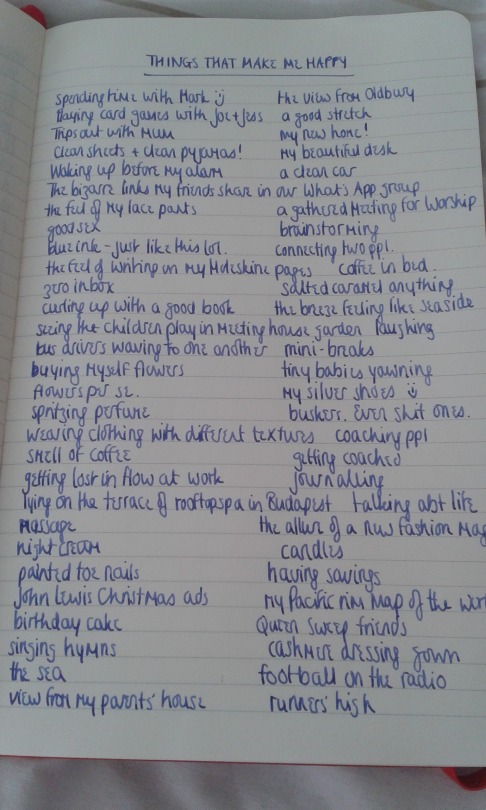 THINGS THAT MAKE ME HAPPY
spending time with Mark :) the view from Oldbury
Playing card games with Joe+Jess a good stretch
Trips out with MUM my new home!
clean sheets + clean pyjamas! my beautiful desk
Waking up before my alarm a clean car
The bizarre links my friends share in our What's App group
the feel of my lace pants a gathered Meeting for Worship
good sex brainstorming
blue ink - just like this lot. connecting two ppl.
the feel of writing on my Moleskine pages coffee in bed.
zero inbox salted caramel anything
curling up with a good book the breeze feeling like seaside
seeing the children play in Meeting house garden laughing
bus drivers waving to one another mini-breaks
buying myself flowers tiny babies yawning
flowers per se. my silver shoes :)
spritzing perfume buskers. Even shit ones.
wearing clothing with different textures coaching ppl
smell of coffee getting coached
getting lost in flow at work journalling
lying on the terrace of rooftop spa in Budapest talking abt life
massage the allure of a new fashion mag
night cream candles
painted toe nails having savings
John Lewis Christmas ads my Pacific rim map of the
birthday cake Queen Sweep friends
singing hymns cashmere dressing gown
the sea football on the radio
view from my parents' house runners' high